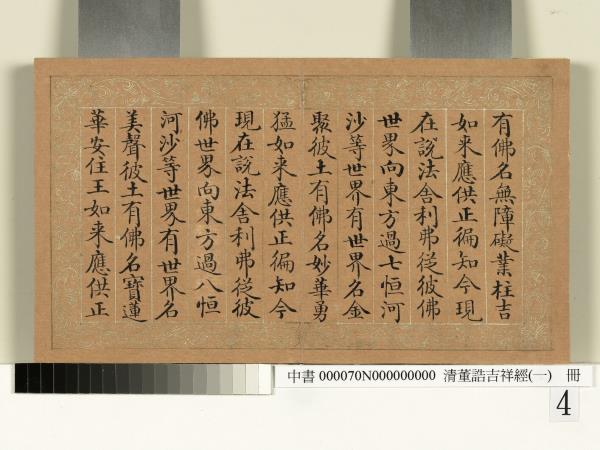 有佛名無障礙業柱吉
如来應供正徧知今現
在說法舎利弗從彼佛
世界向東方過七恒河
沙等世界有世界名金
聚彼土有佛名妙華勇
猛如来應供正徧知今
現在説法舎利弗從彼
佛世界向東方過八恒
河沙等世界有世界名
美聲彼土有佛名寶蓮
華安住王如来應供正
中書 000070N000000000 清董誥吉祥經(一) 冊
4